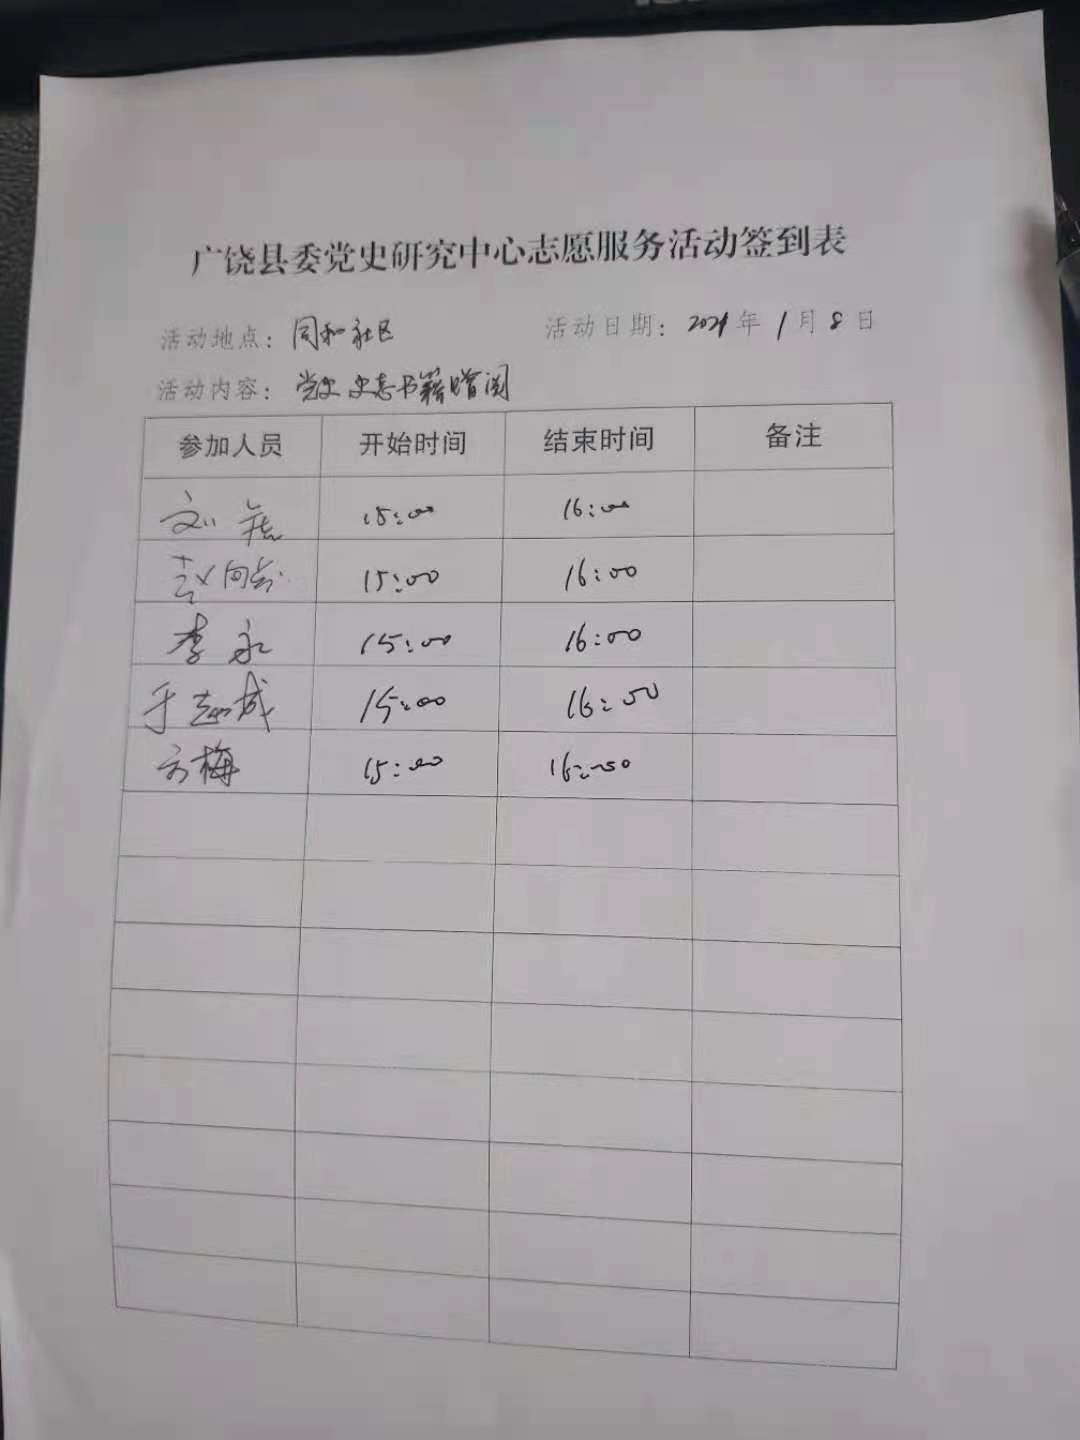 广饶县委党史研究中心志愿服务活动签到表
活动地点：同和社区 活动日期：2021年1月8日
活动内容：党史史志书籍赠阅
参加人员 开始时间 结束时间 备注
刘 15:00 16:00
赵向 15:00 16:00
李永 15:00 16:00
于志成 15:00 16:00
方梅 15:00 16:00